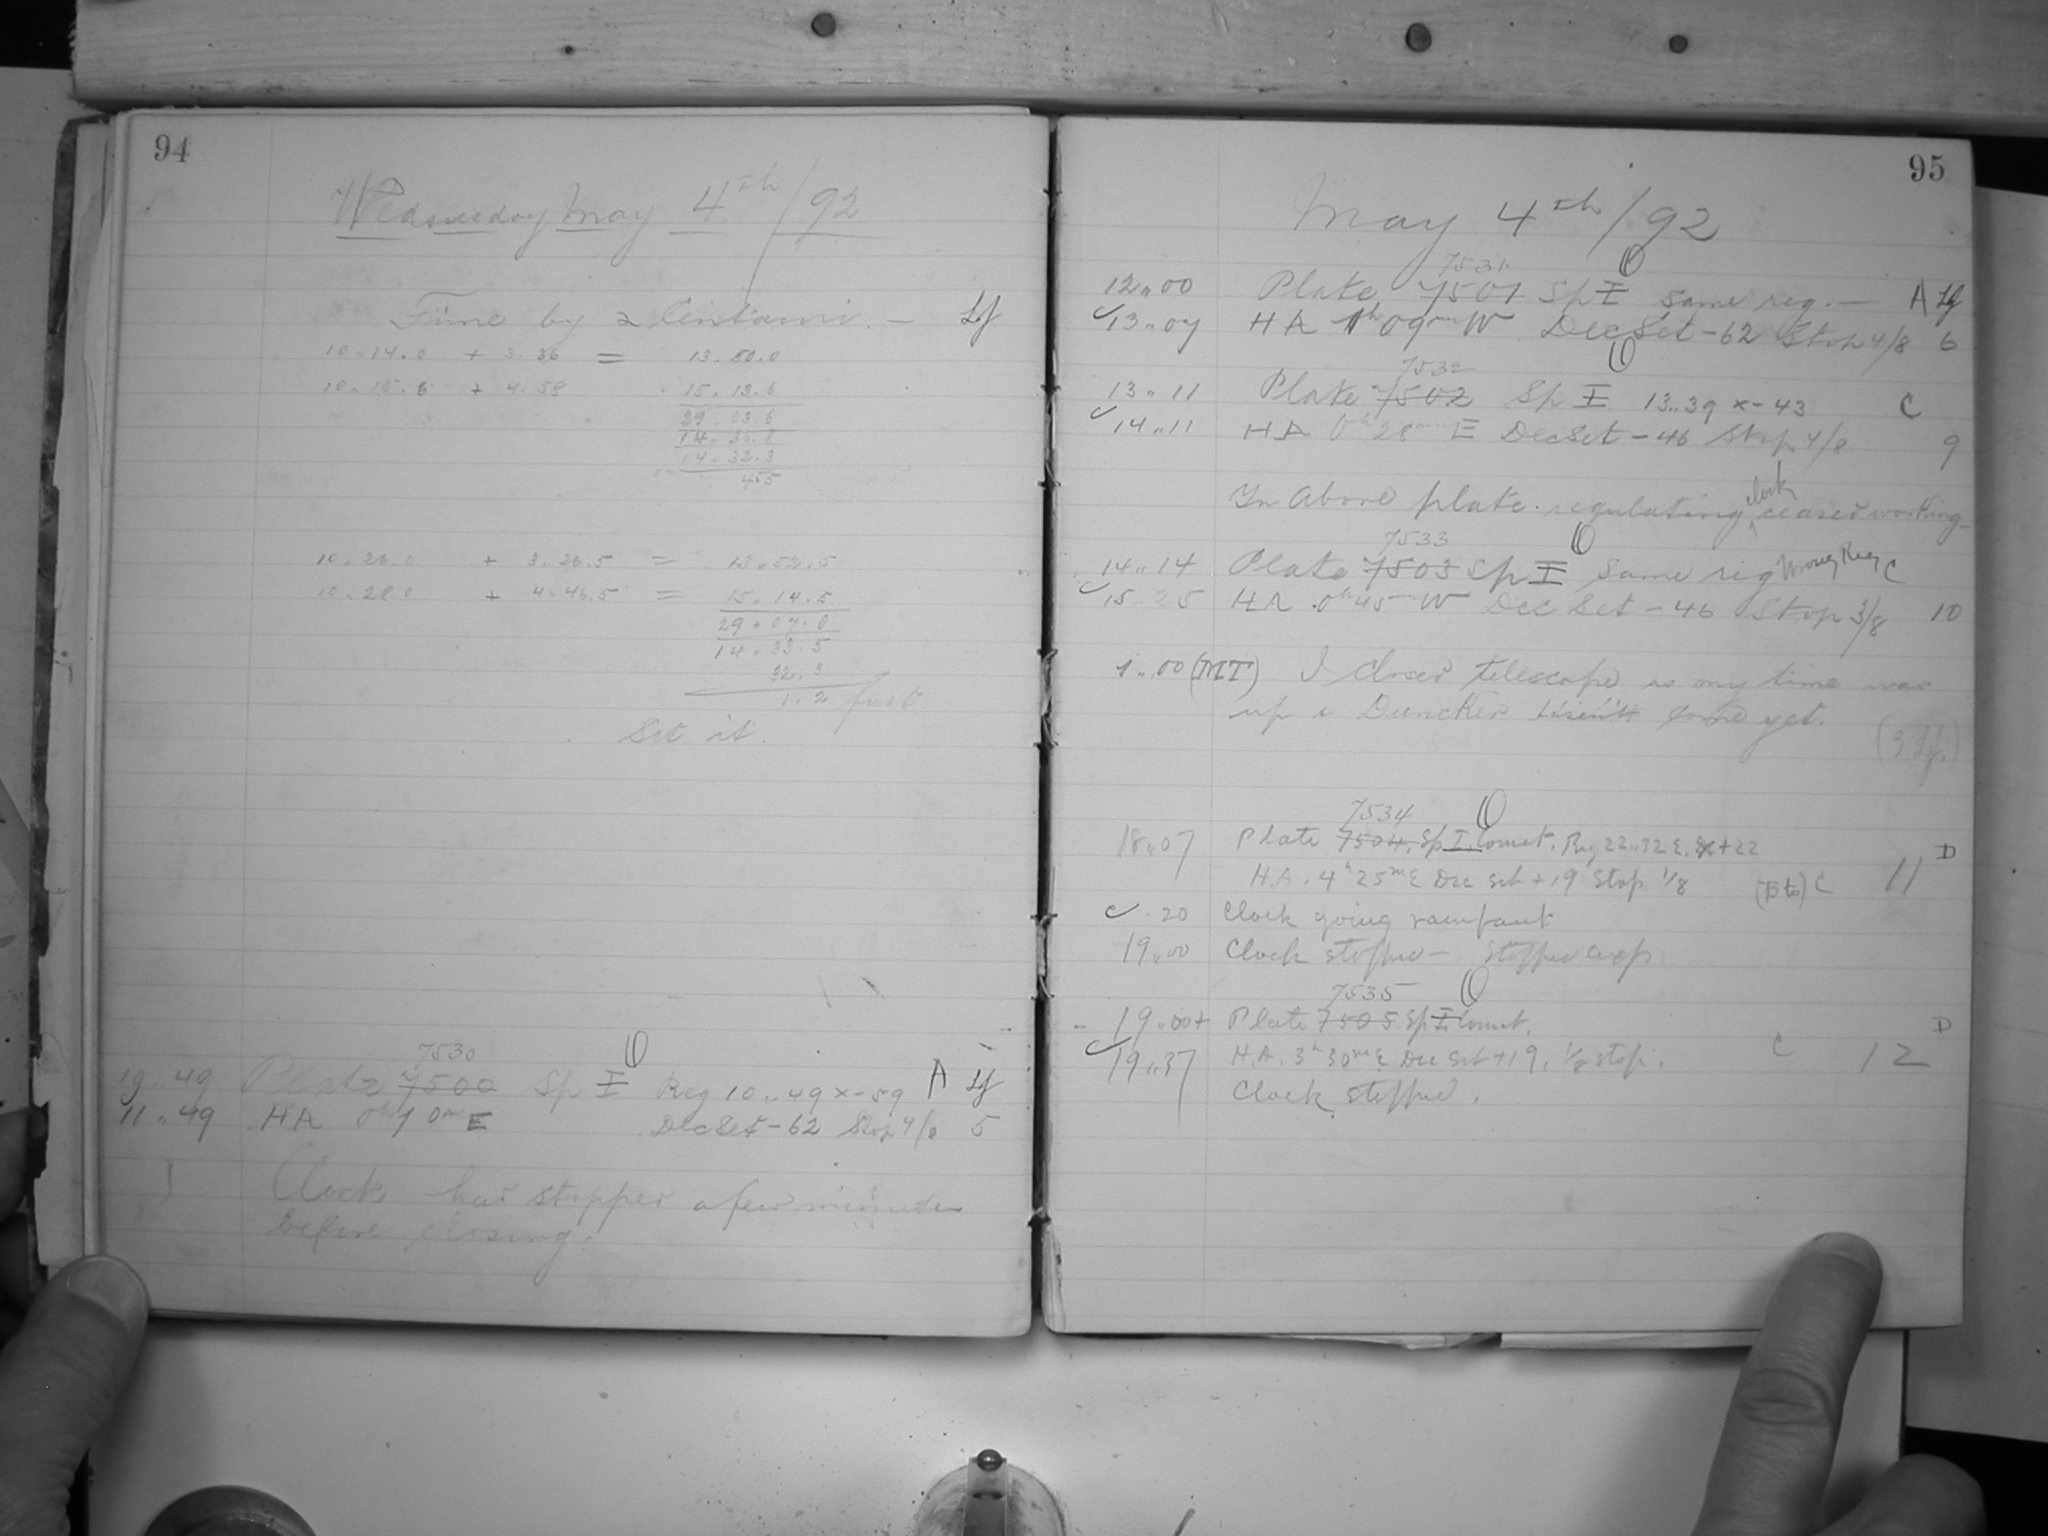 94
Wednesday May 4th/92
Time by α Centauri. — Lf
10..14.0 + 3.36 = 13.50.0
10..15.6 + 4.58 15.13.6
29.03.6
14.31.8
14.32.3
4.5
10.26.0 + 3.26.5 = 13.52.5
10.28.0 + 4.46.5 = 15.14.5
29.07.0
14.33.5
32.3
1.2 fast
Set it.
7530
19..49 Plate 7500 Sp I Reg 10..49 x-59 A Lf
11..49 HA E DecSet-62 Stop 4/8 5
Clock had stopped a few minutes
before closing.
95
May 4th/92
7531
12..00 Plate 7501 Sp I same reg. — A Lf
13..09 HA 1h 09m W Dec Set -62 Stop 4/8 6
7532
13..11 Plate 7502 Sp I 13..39 x-43 C
14..11 HA 0h 28m E DecSet -46 Stop 4/8 9
In above plate regulating clock ceased working
7533
14..14 Plate 7503 Sp I same reg Wrong Reg C
15..25 HA 0h 45m W Dec Set -46 Stop 3/8 10
1..00 (MT) I closed telescope as my time was
up & Duncker come yet.
7534
18..07 Plate 7504. Sp I. Comet. Reg 22..32 E. x+22 D
H.A. 4h 25m E Dec set +19 Stop 1/8 C 11
.20 Clock going rampant
19..00 Clock stopped — Stopped exp.
7535
19..00+ Plate 7505 Sp I Comet. D
19..37 H.A. 3h 30m E Dec set +19. 1/8 stop. C 12
Clock stopped.